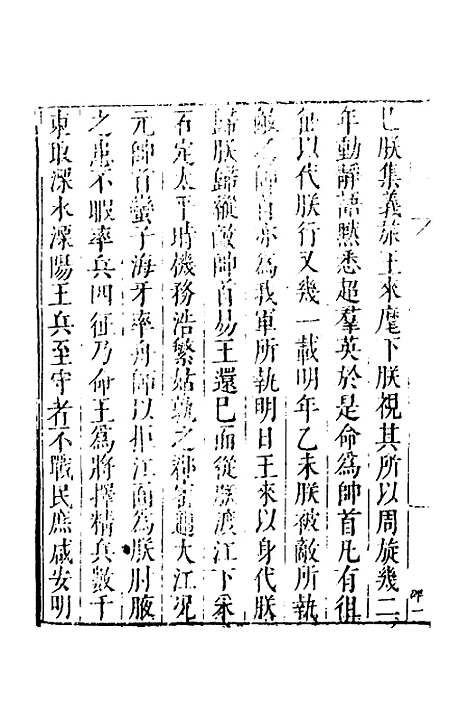 已朕集義旅王來麾下朕視其所以周旋幾二
年動靜語默悉超羣英於是命爲帥首凡有徂
征以代朕行又幾一載明年乙未朕被敵所執
敵之帥首亦爲我軍所執明日王來以身代朕
歸朕歸縱敵帥首易王還已而從朕渡江下采
石定太平時機務浩繁姑孰之鄉密邇大江况
元帥首蠻子海牙率舟師以拒江面爲朕肘腋
之患不暇率兵四征乃命王爲將擇精兵數千
東取溧水溧陽王兵至守者不戰民庶咸安明
碑一